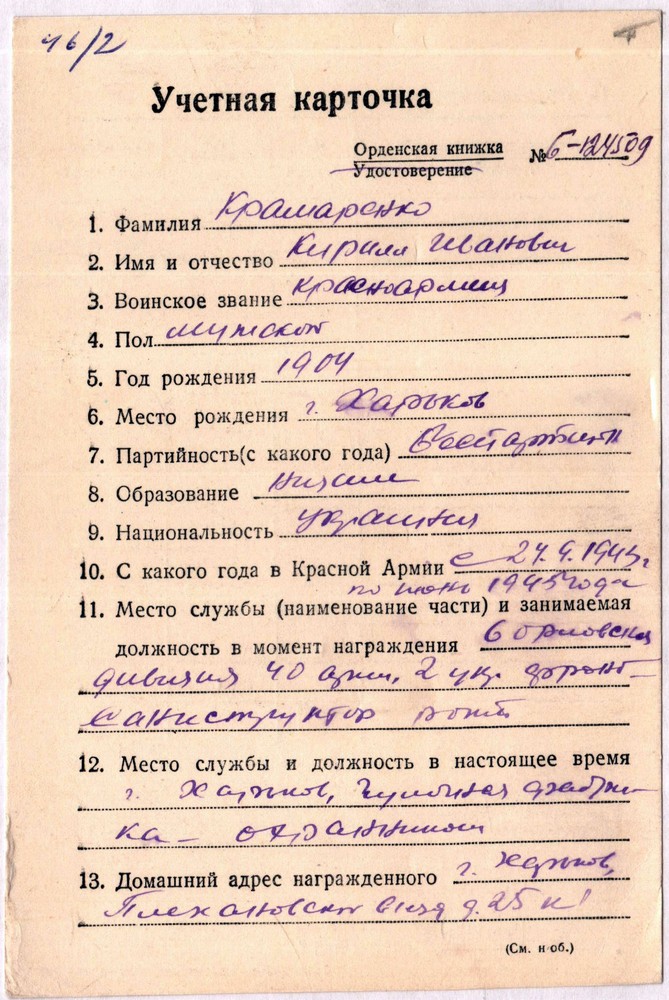 46/2
Учетная карточка
Орденская книжка
Удостоверение
№ Б-124509
1. Фамилия Крамаренко
2. Имя и отчество Кирилл Иванович
3. Воинское звание красноармеец
4. Пол мужской
5. Год рождения 1904
6. Место рождения г. Харьков
7. Партийность(с какого года) беспартийн
8. Образование низшее
9. Национальность украинец
10. С какого года в Красной Армии с 1943г
по июнь 1945 года
11. Место службы (наименование части) и занимаемая
должность в момент награждения 6 орловская
дивизия 40 арм. 2 укр. фронт
санинструктор роты
12. Место службы и должность в настоящее время
г. Харьков, фабри-
ка - охранником
13. Домашний адрес награжденного г. Харьков,
Плехановская д. 25 к 1
(См. н об.)